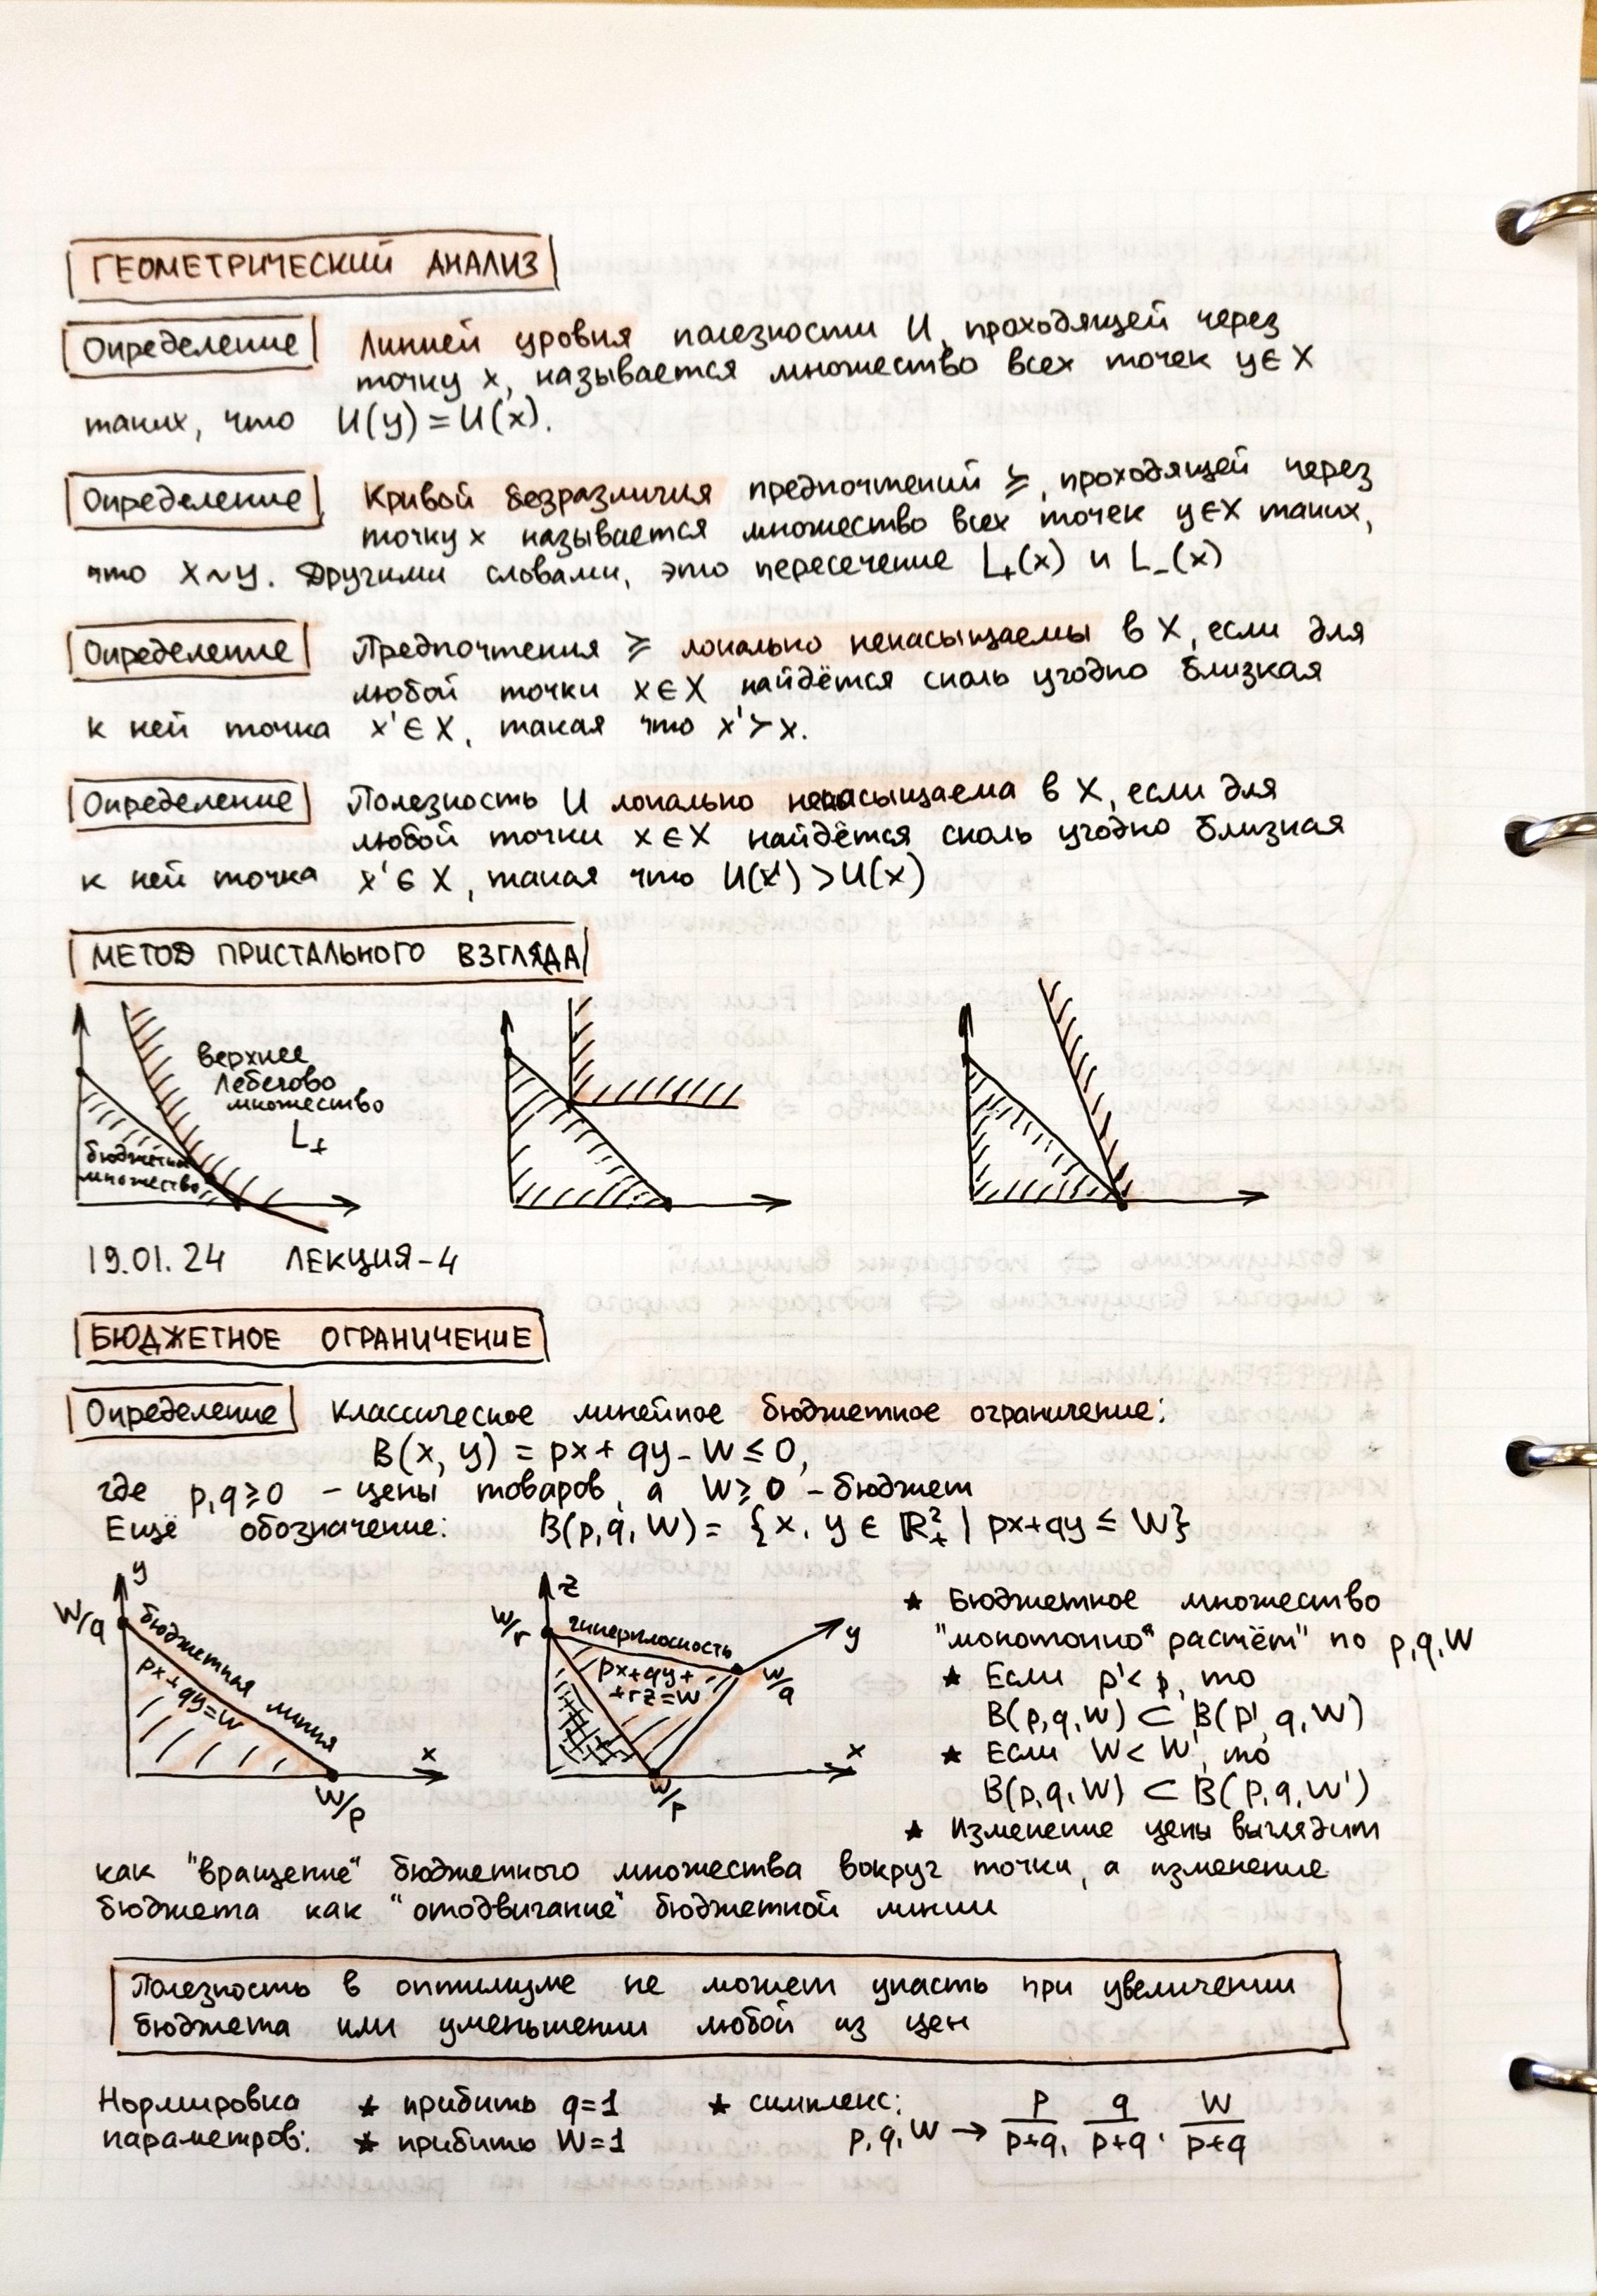 ГЕОМЕТРИЧЕСКИЙ АНАЛИЗ
Определение Линией уровня полезности U, проходящей через
точку x, называется множество всех точек y∈X
таких, что U(y)=U(x).
Определение Кривой безразличия предпочтений ≽, проходящей через
точку x называется множество всех точек y∈X таких,
что x~y. Другими словами, это пересечение L₊(x) и L₋(x)
Определение Предпочтения ≽ локально ненасыщаемы в X, если для
любой точки x∈X найдётся сколь угодно близкая
к ней точка x'∈X, такая что x'≻x.
Определение Полезность U локально ненасыщаема в X, если для
любой точки x∈X найдётся сколь угодно близкая
к ней точка x'∈X, такая что U(x')>U(x)
МЕТОД ПРИСТАЛЬНОГО ВЗГЛЯДА
верхнее
лебегово
множество
L₊
бюджетное
множество
19.01.24 ЛЕКЦИЯ-4
БЮДЖЕТНОЕ ОГРАНИЧЕНИЕ
Определение Классическое линейное бюджетное ограничение:
B(x, y) = px + qy - W ≤ 0,
где p,q≥0 - цены товаров, а W≥0 - бюджет
Ещё обозначение: B(p,q,W) = {x, y ∈ ℝ²₊ | px+qy ≤ W}
y
W/q
бюджетная линия
px+qy=W
x
W/p
z
W/r
гиперплоскость
y
px+qy+
+rz=W
W/q
x
W/p
★ Бюджетное множество
"монотонно" растёт" по p,q,W
★ Если p'<p, то
B(p,q,W) ⊂ B(p',q,W)
★ Если W<W', то
B(p,q,W) ⊂ B(p,q,W')
★ Изменение цены выглядит
как "вращение" бюджетного множества вокруг точки, а изменение
бюджета как "отодвигание" бюджетной линии
Полезность в оптимуме не может упасть при увеличении
бюджета или уменьшении любой из цен
Нормировка ★ прибить q=1 ★ симплекс:
параметров: ★ прибить W=1 p,q,W → p/(p+q), q/(p+q), W/(p+q)